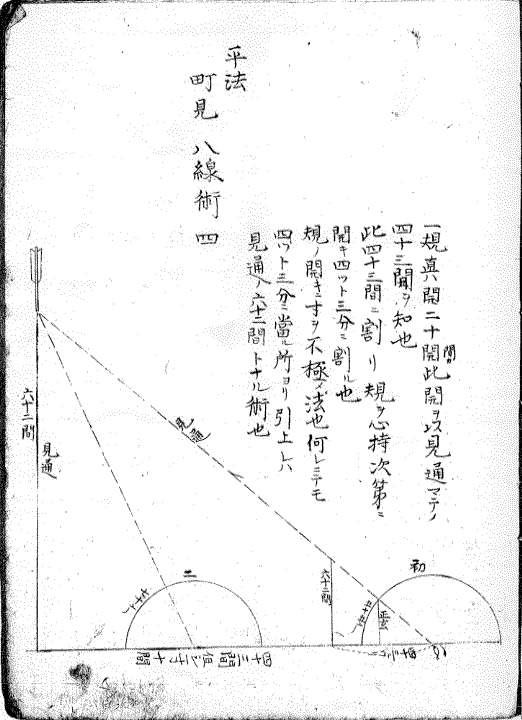 平法
町見 八線術 四
一規真ノ開二十間此開ヲ以見通マテノ
四十三間ヲ知也
此四十三間ニ割リ規ヲ心持次第ニ
開キ四ツト三分ニ割ル也
規ノ開キニ寸ヲ不極ノ法也何レニテモ
四ツト三分ニ當ル所ヨリ引上レハ
見通ノ六十二間トナル術也
六十二間
見通
見通
二
初
六十二間
正玄
四十三間